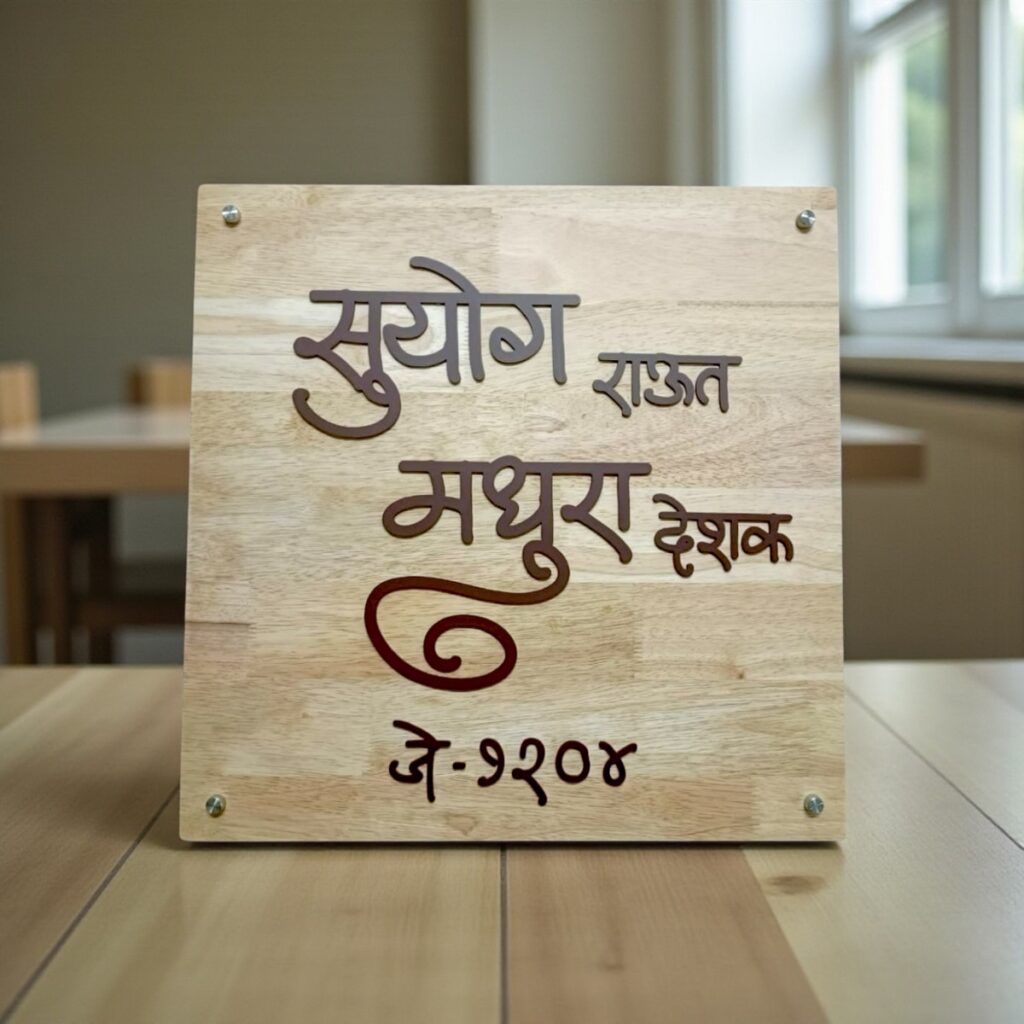 सुयोग राऊत
मधुरा देशक
जे-१२०४